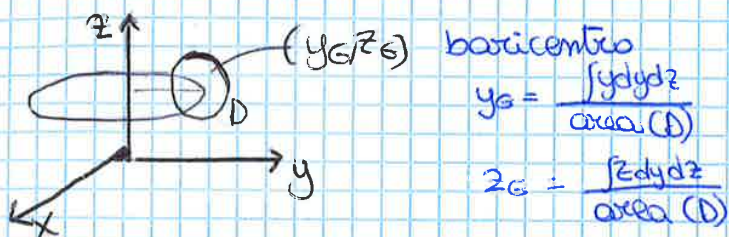 z
(y_G, z_G) baricentro
y_G = ∫ydydz / area (D)
D
y
z_G = ∫zdydz / area (D)
x